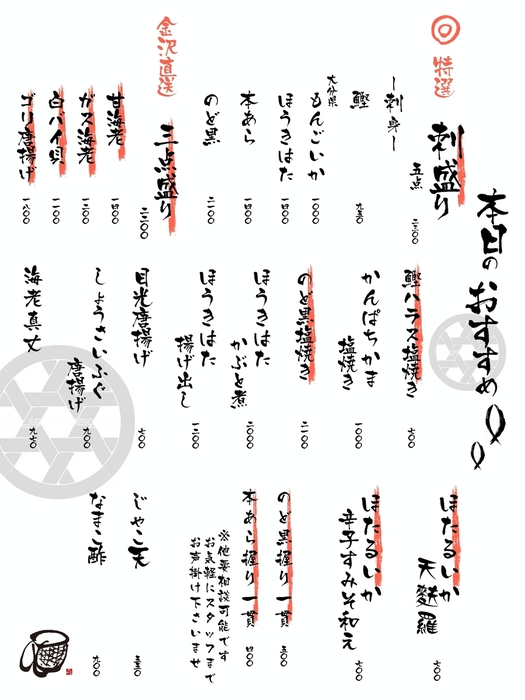 本日のおすすめ
特選
刺盛り
五点 二三〇〇
ー刺身ー
鰹 九五〇
大分県
もんごいか 一〇〇〇
ほうきはた 一四〇〇
本あら 一四〇〇
のど黒 二一〇〇
金沢直送
三点盛り
甘海老 一四〇〇
ガス海老
白バイ貝 一一〇〇
ゴリ唐揚げ
鰹ハラス塩焼き 七〇〇
かんぱちかま
塩焼き 一〇〇〇
のど黒塩焼き 二一〇〇
ほうきはた
かぶと煮 二〇〇〇
ほうきはた
揚げ出し
目光唐揚げ 七〇〇
しょうさいふぐ
唐揚げ 九〇〇
海老真丈 九七〇
ほたるいか
天麩羅 七〇〇
ほたるいか
辛子すみそ和え 七〇〇
のど黒握り一貫 五〇〇
本あら握り一貫 四〇〇
※他要相談可能です
お気軽にスタッフまで
お声掛け下さいませ
じゃこ天
なまこ酢 九〇〇